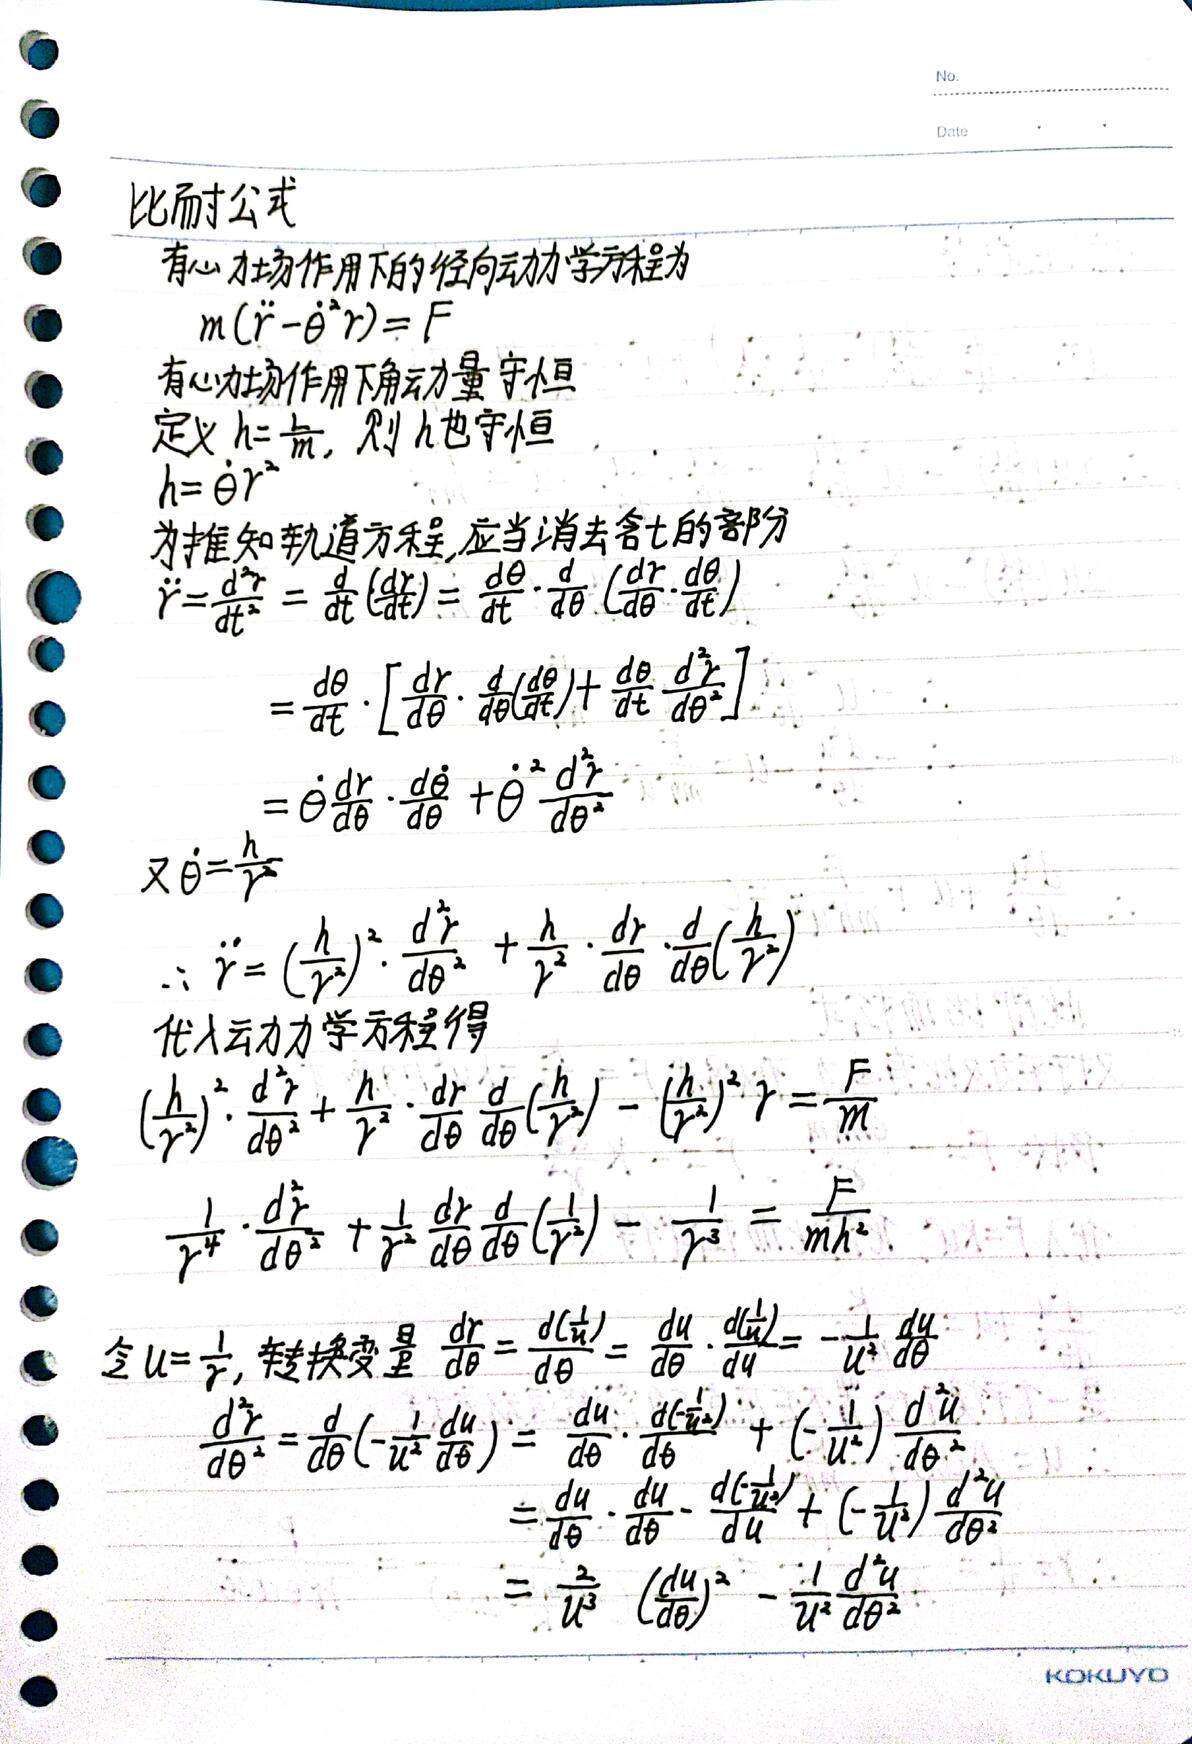 No.
Date
比耐公式
有心力场作用下的径向动力学方程为
m(r̈-θ̇²r)=F
有心力场作用下角动量守恒
定义 h=L/m, 则h也守恒
h=θ̇r²
为推知轨道方程,应当消去含t的部分
r̈=d²r/dt² = d/dt(dr/dt) = dθ/dt·d/dθ(dr/dθ·dθ/dt)
=dθ/dt·[dr/dθ·d/dθ(dθ/dt)+dθ/dt d²r/dθ²]
=θ̇dr/dθ·dθ̇/dθ+θ̇²d²r/dθ²
又θ̇=h/r²
∴ r̈=(h/r²)²·d²r/dθ²+h/r²·dr/dθ·d/dθ(h/r²)
代入动力学方程得
(h/r²)²·d²r/dθ²+h/r²·dr/dθ d/dθ(h/r²)-(h/r²)²r=F/m
1/r⁴·d²r/dθ²+1/r² dr/dθ d/dθ(1/r²)-1/r³=F/mh²
令u=1/r, 转换变量 dr/dθ=d(1/u)/dθ=du/dθ·d(1/u)/du=-1/u² du/dθ
d²r/dθ²=d/dθ(-1/u² du/dθ)=du/dθ·d(-1/u²)/dθ+(-1/u²)d²u/dθ²
=du/dθ·du/dθ-d(-1/u²)/du+(-1/u²)d²u/dθ²
=2/u³(du/dθ)²-1/u² d²u/dθ²
KOKUYO